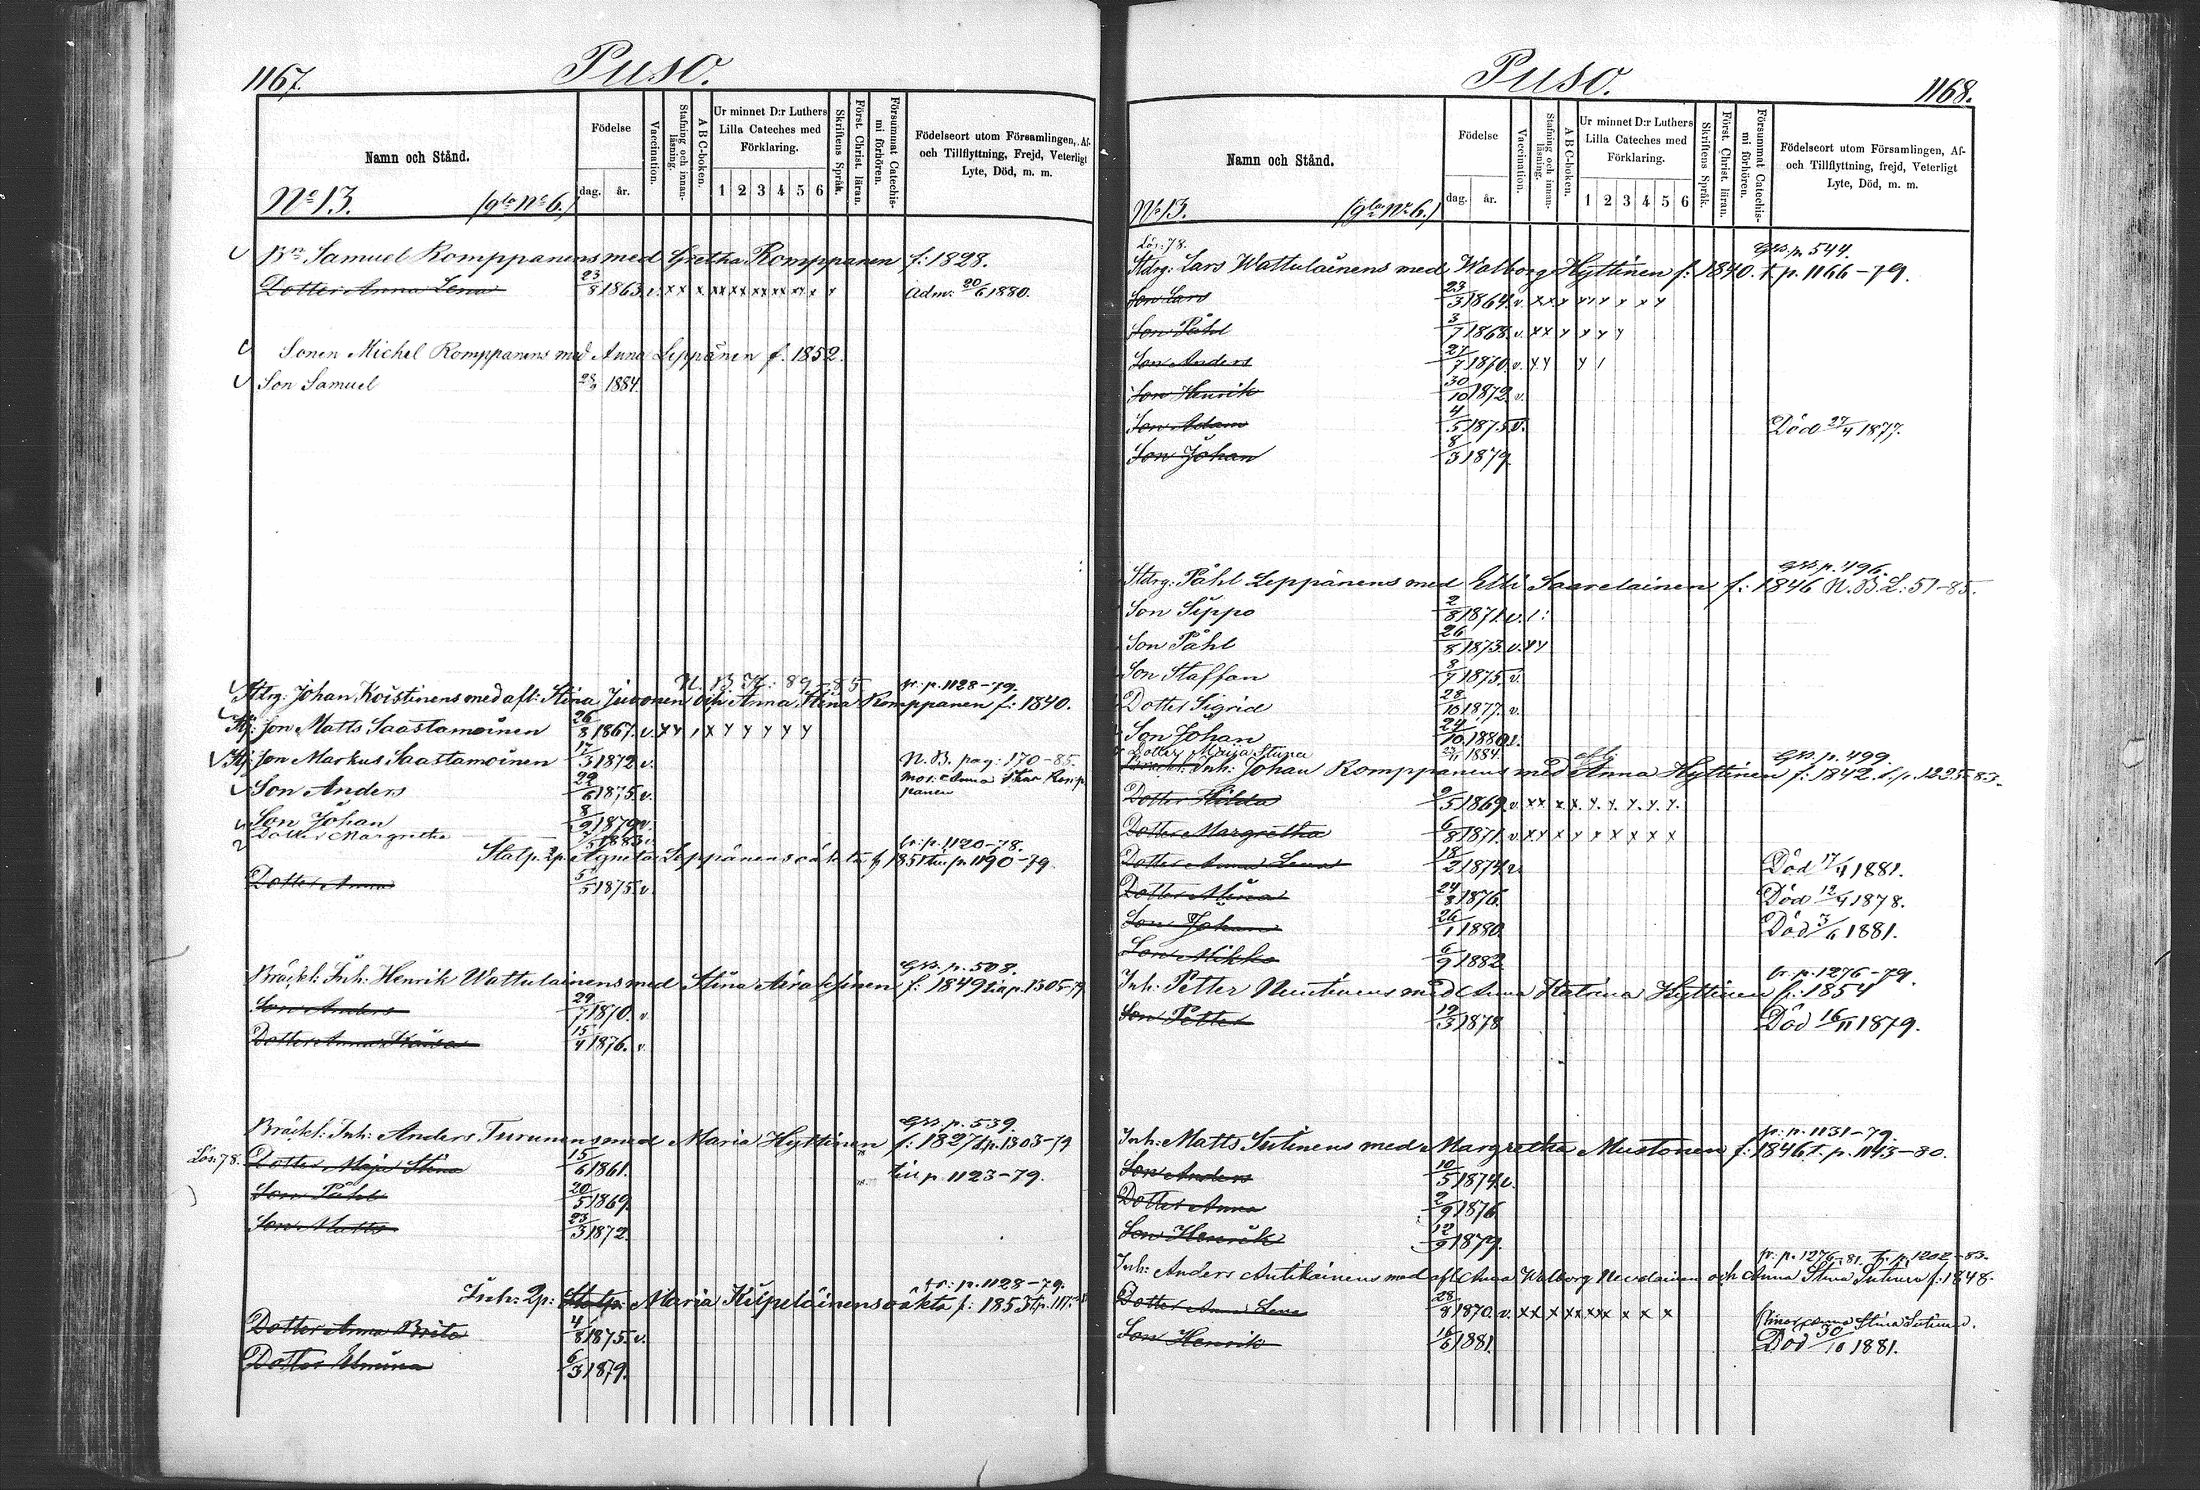 1167.
Puso.
Namn och Stånd.
Födelse
dag. år.
Vaccination.
Stafning och innanläsning.
A B C-boken.
Ur minnet D:r Luthers Lilla Cateches med Förklaring.
1 2 3 4 5 6
Skriftens Språk.
Först. Christ. läran.
Försummat Catechismi förhören.
Födelseort utom Församlingen, Af- och Tillflyttning, Frejd, Veterligt Lyte, Död, m. m.
No 13. (gla No 6.)
Bn Samuel Romppanens med Gretha Romppanen f: 1828.
Dotter Anna Lena 23/8 1863. v. Adm: 20/6 1880.
Sonen Michel Romppanens med Anna Leppänen f. 1852.
Son Samuel 1884.
N. B. 89-85 fr. p. 1128-79.
Stdrg: Johan Koistinens med afl: Stina Juvonen och Anna Stina Romppanen f: 1840.
Son Matts Saastamoinen 26/8 1867. v.
Son Markus Saastamoinen 17/3 1872 v. N. B. pag: 170-85.
Son Anders 29/6 1875. v.
Son Johan 8/9 1879 v.
Dotter Margretha 1883
fr: p. 1120-78.
Statp. 2p. Agneta Leppänens oäkta f 1851 tu p. 1190-79.
Dotter Anna 5/5 1875. v.
GB. p. 508.
Bräckl: Inh: Henrik Wattulainens med Stina f: 1849 tu p. 1305-79
Son Anders 29/7 1870. v.
Dotter Anna Kaisa 15/4 1876. v.
GB. p. 539.
Bräckl: Inh: Anders Turunens med Maria Hyttinen f: 1827 t.p. 1303-79
Lös: 78. Dotter Maja Stina 15/6 1861. tu p. 1123-79.
Son Påhl 20/5 1869.
Son Matts 23/3 1872.
fr: p. 1128-79.
Inh: 2p: Statp: Maria Kilpeläinens oäkta f: 1853
Dotter Anna Brita 4/8 1875. v.
Dotter Elmina 6/3 1879.
Puso.
1168.
Namn och Stånd.
Födelse
dag. år.
Vaccination.
Stafning och innanläsning.
A B C-boken.
Ur minnet D:r Luthers Lilla Cateches med Förklaring.
1 2 3 4 5 6
Skriftens Språk.
Först. Christ. läran.
Försummat Catechismi förhören.
Födelseort utom Församlingen, Af- och Tillflyttning, frejd, Veterligt Lyte, Död, m. m.
No 13. (gla No 6.)
Lös: 78. GB. p. 544.
Stdrg: Lars Wattulainens med Walborg Hyttinen f: 1840. t. p. 1166-79.
Son Lars 23/3 1864. v.
Son Påhl 3/7 1868. v.
Son Anders 27/7 1870. v.
Son Henrik 30/10 1872. v.
Son Adam 4/5 1875. v. Död 27/4 1877.
Son Johan 8/3 1879.
GB. p. 496.
Stdrg: Påhl Leppänens med Elli Saarelainen f: 1846 N. B. L: 51-85.
Son Sippo 2/8 1871. v.
Son Påhl 26/8 1873. v.
Son Staffan 8/7 1875. v.
Dotter Sigrid 28/10 1877. v.
Son Johan 24/10 1880 v.
Dotter Maija Stina 1884. GB. p. 499
Bräckl: Inh: Johan Romppanens med Anna Hyttinen f: 1842. t. p. 1225-83.
Dotter Hilda 9/5 1869. v.
Dotter Margretha 6/8 1871. v.
Dotter Anna Lena 18/2 1874. v. Död 17/4 1881.
Dotter Miina 24/8 1876. Död 12/4 1878.
Son Johan 26/1 1880 Död 3/6 1881.
Son Mikko 6/9 1882
fr. p. 1276-79.
Inh: Petter Nuutinens med Anna Katrina Hyttinen f: 1854
Son Petter 19/3 1878 Död 16/11 1879.
fr: p. 1131-79.
Inh: Matts Sutinens med Margretha Mustonen f: 1846 t. p. 1143-80.
Son Anders 10/5 1874. v.
Dotter Anna 2/9 1876
Son Henrik 12/9 1879.
fr: p. 1276-81. t. p. 1202-83.
Inh: Anders Antikainens med afl. Anna Walborg Nevalainen och Anna Stina Sutinen f: 1848.
Dotter Anna Lena 28/8 1870. v.
Anna Stina Sutinen.
Son Henrik 16/6 1881. Död 30/10 1881.